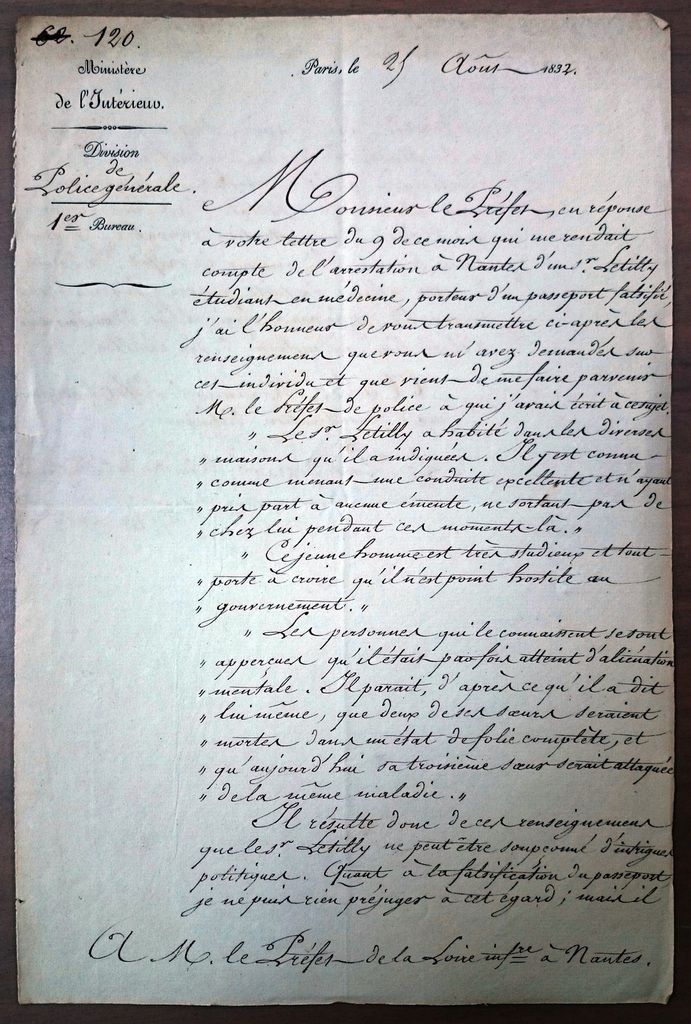 120.
Ministère
de l'Intérieur.
Division
de
Police générale.
1er Bureau.
Paris, le 25 Août 1832.
Monsieur le Préfet, en réponse
à votre lettre du 9 de ce mois qui me rendait
compte de l'arrestation à Nantes d'un sr. Letilly
étudiant en médecine, porteur d'un passeport falsifié,
j'ai l'honneur de vous transmettre ci-après les
renseignemens que vous m'avez demandés sur
cet individu et que vient de me faire parvenir
M. le Préfet de police à qui j'avais écrit à ce sujet.
" Le sr. Letilly a habité dans les diverses
" maisons qu'il a indiquées. Il y est connu
" comme menant une conduite excellente et n'ayant
" pris part à aucune émeute, ne sortant pas de
" chez lui pendant ces moments-là. "
" Ce jeune homme est très studieux et tout
" porte à croire qu'il n'est point hostile au
" gouvernement. "
" Les personnes qui le connaissent se sont
" apperçues qu'il était parfois atteint d'aliénation
" mentale. Il parait, d'après ce qu'il a dit
" lui même, que deux de ses sœurs seraient
" mortes dans un état de folie complète, et
" qu'aujourd'hui sa troisième sœur serait attaquée
" de la même maladie. "
Il résulte donc de ces renseignemens
que le sr. Letilly ne peut être soupçonné d'intrigues
politiques. Quant à la falsification du passeport,
je ne puis rien préjuger à cet égard ; mais il
A M. le Préfet de la Loire infre à Nantes.